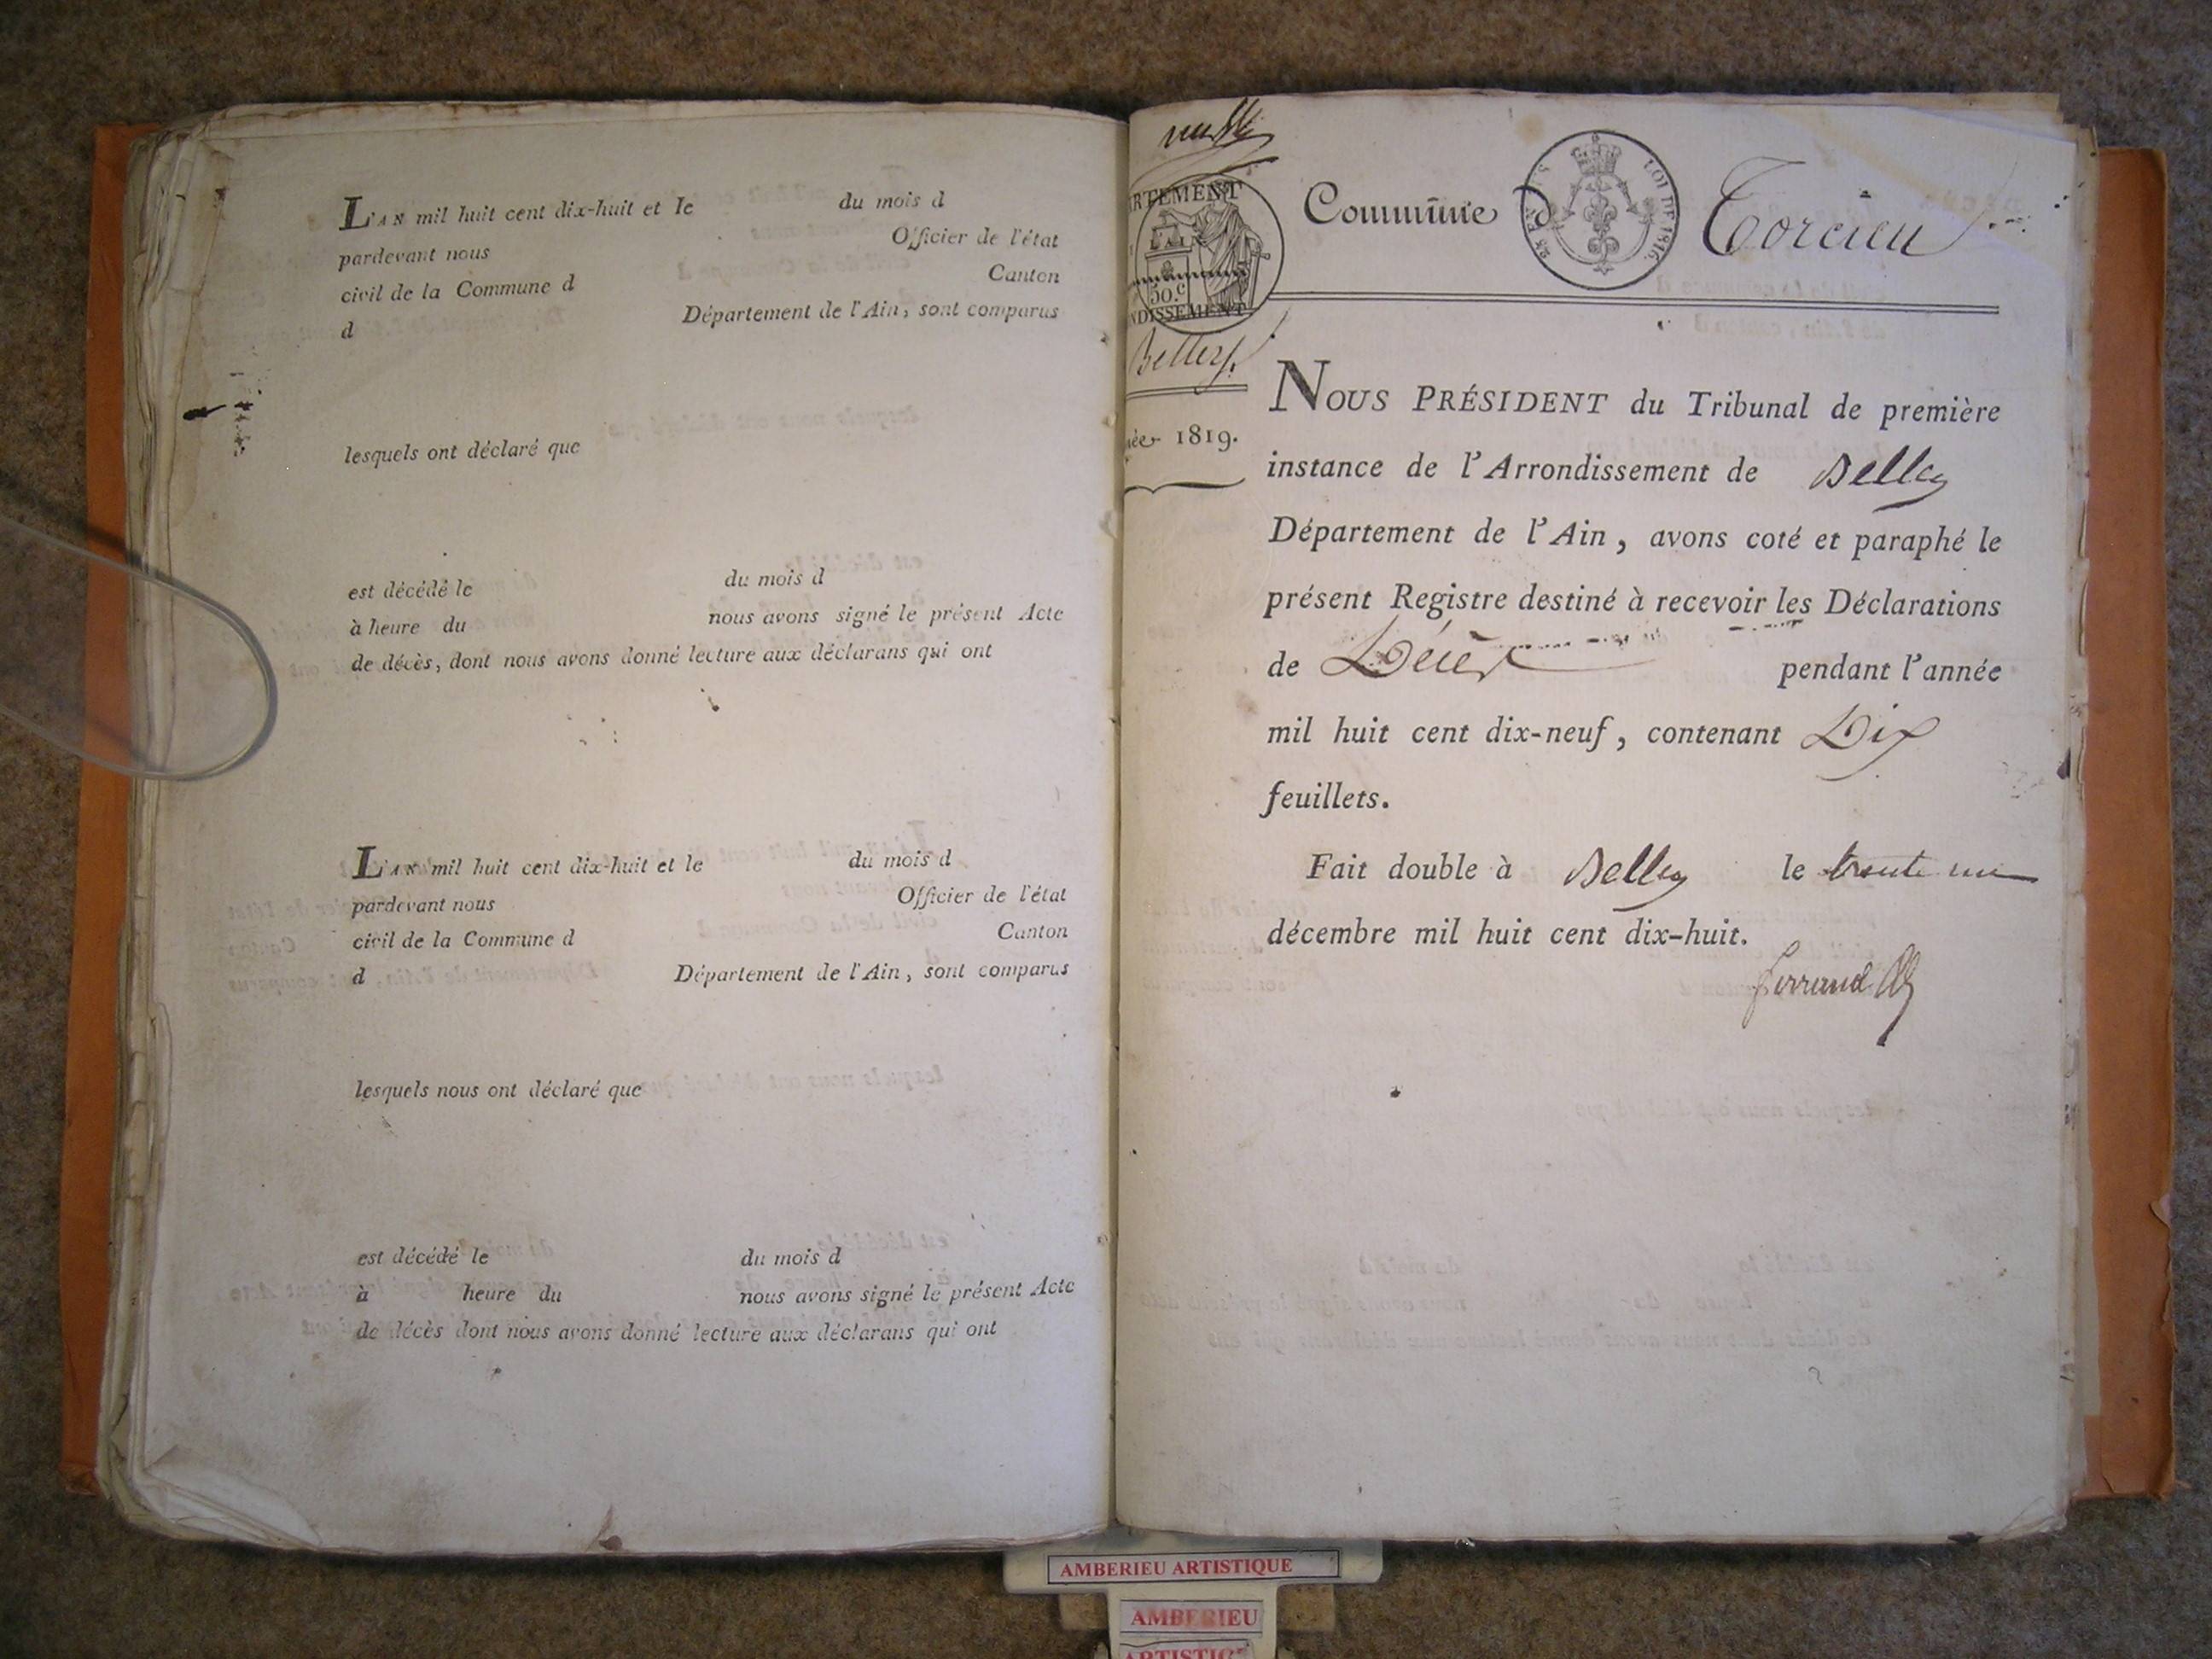 L'AN mil huit cent dix-huit et le du mois d
pardevant nous Officier de l'état
civil de la Commune d Canton
d Département de l'Ain, sont comparus
lesquels ont déclaré que
est décédé le du mois d
à heure du nous avons signé le présent Acte
de décès, dont nous avons donné lecture aux déclarans qui ont
L'AN mil huit cent dix-huit et le du mois d
pardevant nous Officier de l'état
civil de la Commune d Canton
d Département de l'Ain, sont comparus
lesquels nous ont déclaré que
est décédé le du mois d
à heure du nous avons signé le présent Acte
de décès dont nous avons donné lecture aux déclarans qui ont
RTEMENT
L'AI
50.c
NDISSEMENT
Belley.
née 1819.
Commune d Torcieu
LOI DE 1816.
NOUS PRÉSIDENT du Tribunal de première
instance de l'Arrondissement de Belley
Département de l'Ain, avons coté et paraphé le
présent Registre destiné à recevoir les Déclarations
de Décès pendant l'année
mil huit cent dix-neuf, contenant Dix
feuillets.
Fait double à Belley le trente un
décembre mil huit cent dix-huit.
Ferrand
AMBERIEU ARTISTIQUE
AMBERIEU